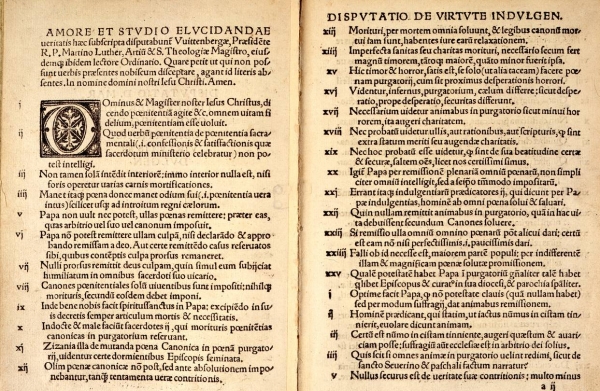 AMORE ET STVDIO ELVCIDANDAE
ueritatis hæc subscripta disputabunt̃ Vuittenbergæ, Præsidẽte
R. P. Martino Luther, Artiũ & S. Theologiæ Magistro, eius-
demq̃ ibidem lectore Ordinatio. Quare petit ut qui non pos
sunt uerbis præsentes nobiscum disceptare, agant id literis ab-
sentes. In nomine domini nostri Iesu Christi. Amen.
i Ominus & Magister noster Iesus Christus, di-
cendo pœnitentiã agite &c, omnem uitam fi
delium, pœnitentiam esse uoluit.
ij Quod uerbũ pœnitentia de pœnitentia sacra-
mentali (.i. confessionis & satisfactionis quæ
sacerdotum ministerio celebratur) non po-
test intelligi.
iij Non tamen solã intẽdit interiorẽ; immo interior nulla est, nisi
foris operetur uarias carnis mortificationes.
iiij Manet itaq̃ pœna donec manet odium sui (.i. pœnitentia uera
intus) scilicet usq̃ ad introitum regni cælorum.
v Papa non uult nec potest, ullas pœnas remittere; præter eas,
quas arbitrio uel suo uel canonum imposuit.
vj Papa nõ potest remittere ullam culpã, nisi declarãdo & appro
bando remissam a deo. Aut certe remittẽdo casus reseruatos
sibi, quibus contẽptis culpa prorsus remaneret.
vij Nulli prorsus remittit deus culpam, quin simul eum subijciat
humiliatum in omnibus sacerdoti suo uicario.
viij Canones pœnitentiales solũ uiuentibus sunt impositi; nihilq̃
morituris, secundũ eosdem debet imponi.
ix Inde bene nobis facit spiritussanctus in Papa; excipiẽdo in su-
is decretis semper articulum mortis & necessitatis.
x Indocte & male faciũt sacerdotes ij, qui morituris pœnitẽtias
canonicas in purgatorium reseruant.
xj Zizania illa de mutanda pœna Canonica in pœnã purgato-
rij, uidentur certe dormientibus Episcopis seminata.
xij Olim pœnæ canonicæ nõ post, sed ante absolutionem impo-
nebantur, tanq̃ tentamenta ueræ contritionis.
DISPVTATIO DE VIRTVTE INDVLGEN.
xiij Morituri, per mortem omnia soluunt, & legibus canonũ mor-
tui iam sunt, habentes iure earũ relaxationem.
xiiij Imperfecta sanitas seu charitas morituri, necessario secum fert
magnũ timorem, tãtoq̃ maiorẽ, quãto minor fuerit ipsa.
xv Hic timor & horror, satis est, se solo (ut alia taceam) facere pœ-
nam purgatorij, cum sit proximus desperationis horrori.
xvj Videntur, infernus, purgatorium, cælum differre; sicut despe-
ratio, prope desperatio, securitas differunt.
xvij Necessarium uidetur animabus in purgatorio sicut minui hor
rorem, ita augeri charitatem.
xviij Nec probatũ uidetur ullis, aut rationibus, aut scripturis, q̃ sint
extra statum meriti seu augendæ charitatis.
xix Nec hoc probatũ esse uidetur, q̃ sint de sua beatitudine certæ
& securæ, saltem oẽs, licet nos certissimi simus.
xx Igit̃ Papa per remissionẽ plenariã omniũ pœnarũ, non simpli
citer omniũ intelligit, sed a seipso tũmodo impositarũ.
xxj Errant itaq̃ indulgentiarũ prædicatores ij, qui dicunt per Pa-
pæ indulgentias, hominẽ ab omni pœna solui & saluari.
xxij Quin nullam remittit animabus in purgatorio, quã in hac ui-
ta debuissent secundum Canones soluere.
xxiij Si remissio ulla omniũ omnino pœnarũ põt alicui dari; certũ
est eam nõ nisi perfectissimis .i. paucissimis dari.
xxiiij Falli ob id necesse est, maiorem partẽ populi; per indifferentẽ
illam & magnificam pœnæ solutæ promissionem.
xxv Qualẽ potestatẽ habet Papa ĩ purgatoriũ gñaliter talẽ habet q̃
libet Episcopus & curat9 in sua diocesi, & parochia spãliter.
i Optime facit Papa, q̃ nõ potestate clauis (quã nullam habet)
sed per modum suffragij, dat animabus remissionem.
ij Hominẽ prædicant, qui statim, ut iactus nũmus in cistam tin-
nierit, euolare dicunt animam.
iij Certũ est nũmo in cistam tinniente, augeri quæstum & auari-
ciam posse; suffragiũ aũt ecclesiæ est in arbitrio dei solius.
iiij Quis scit si omnes animæ in purgatorio uelint redimi, sicut de
sancto Seuerino & paschali factum narratur.
v Nullus securus est de ueritate suæ contritionis; multo minus
a ij